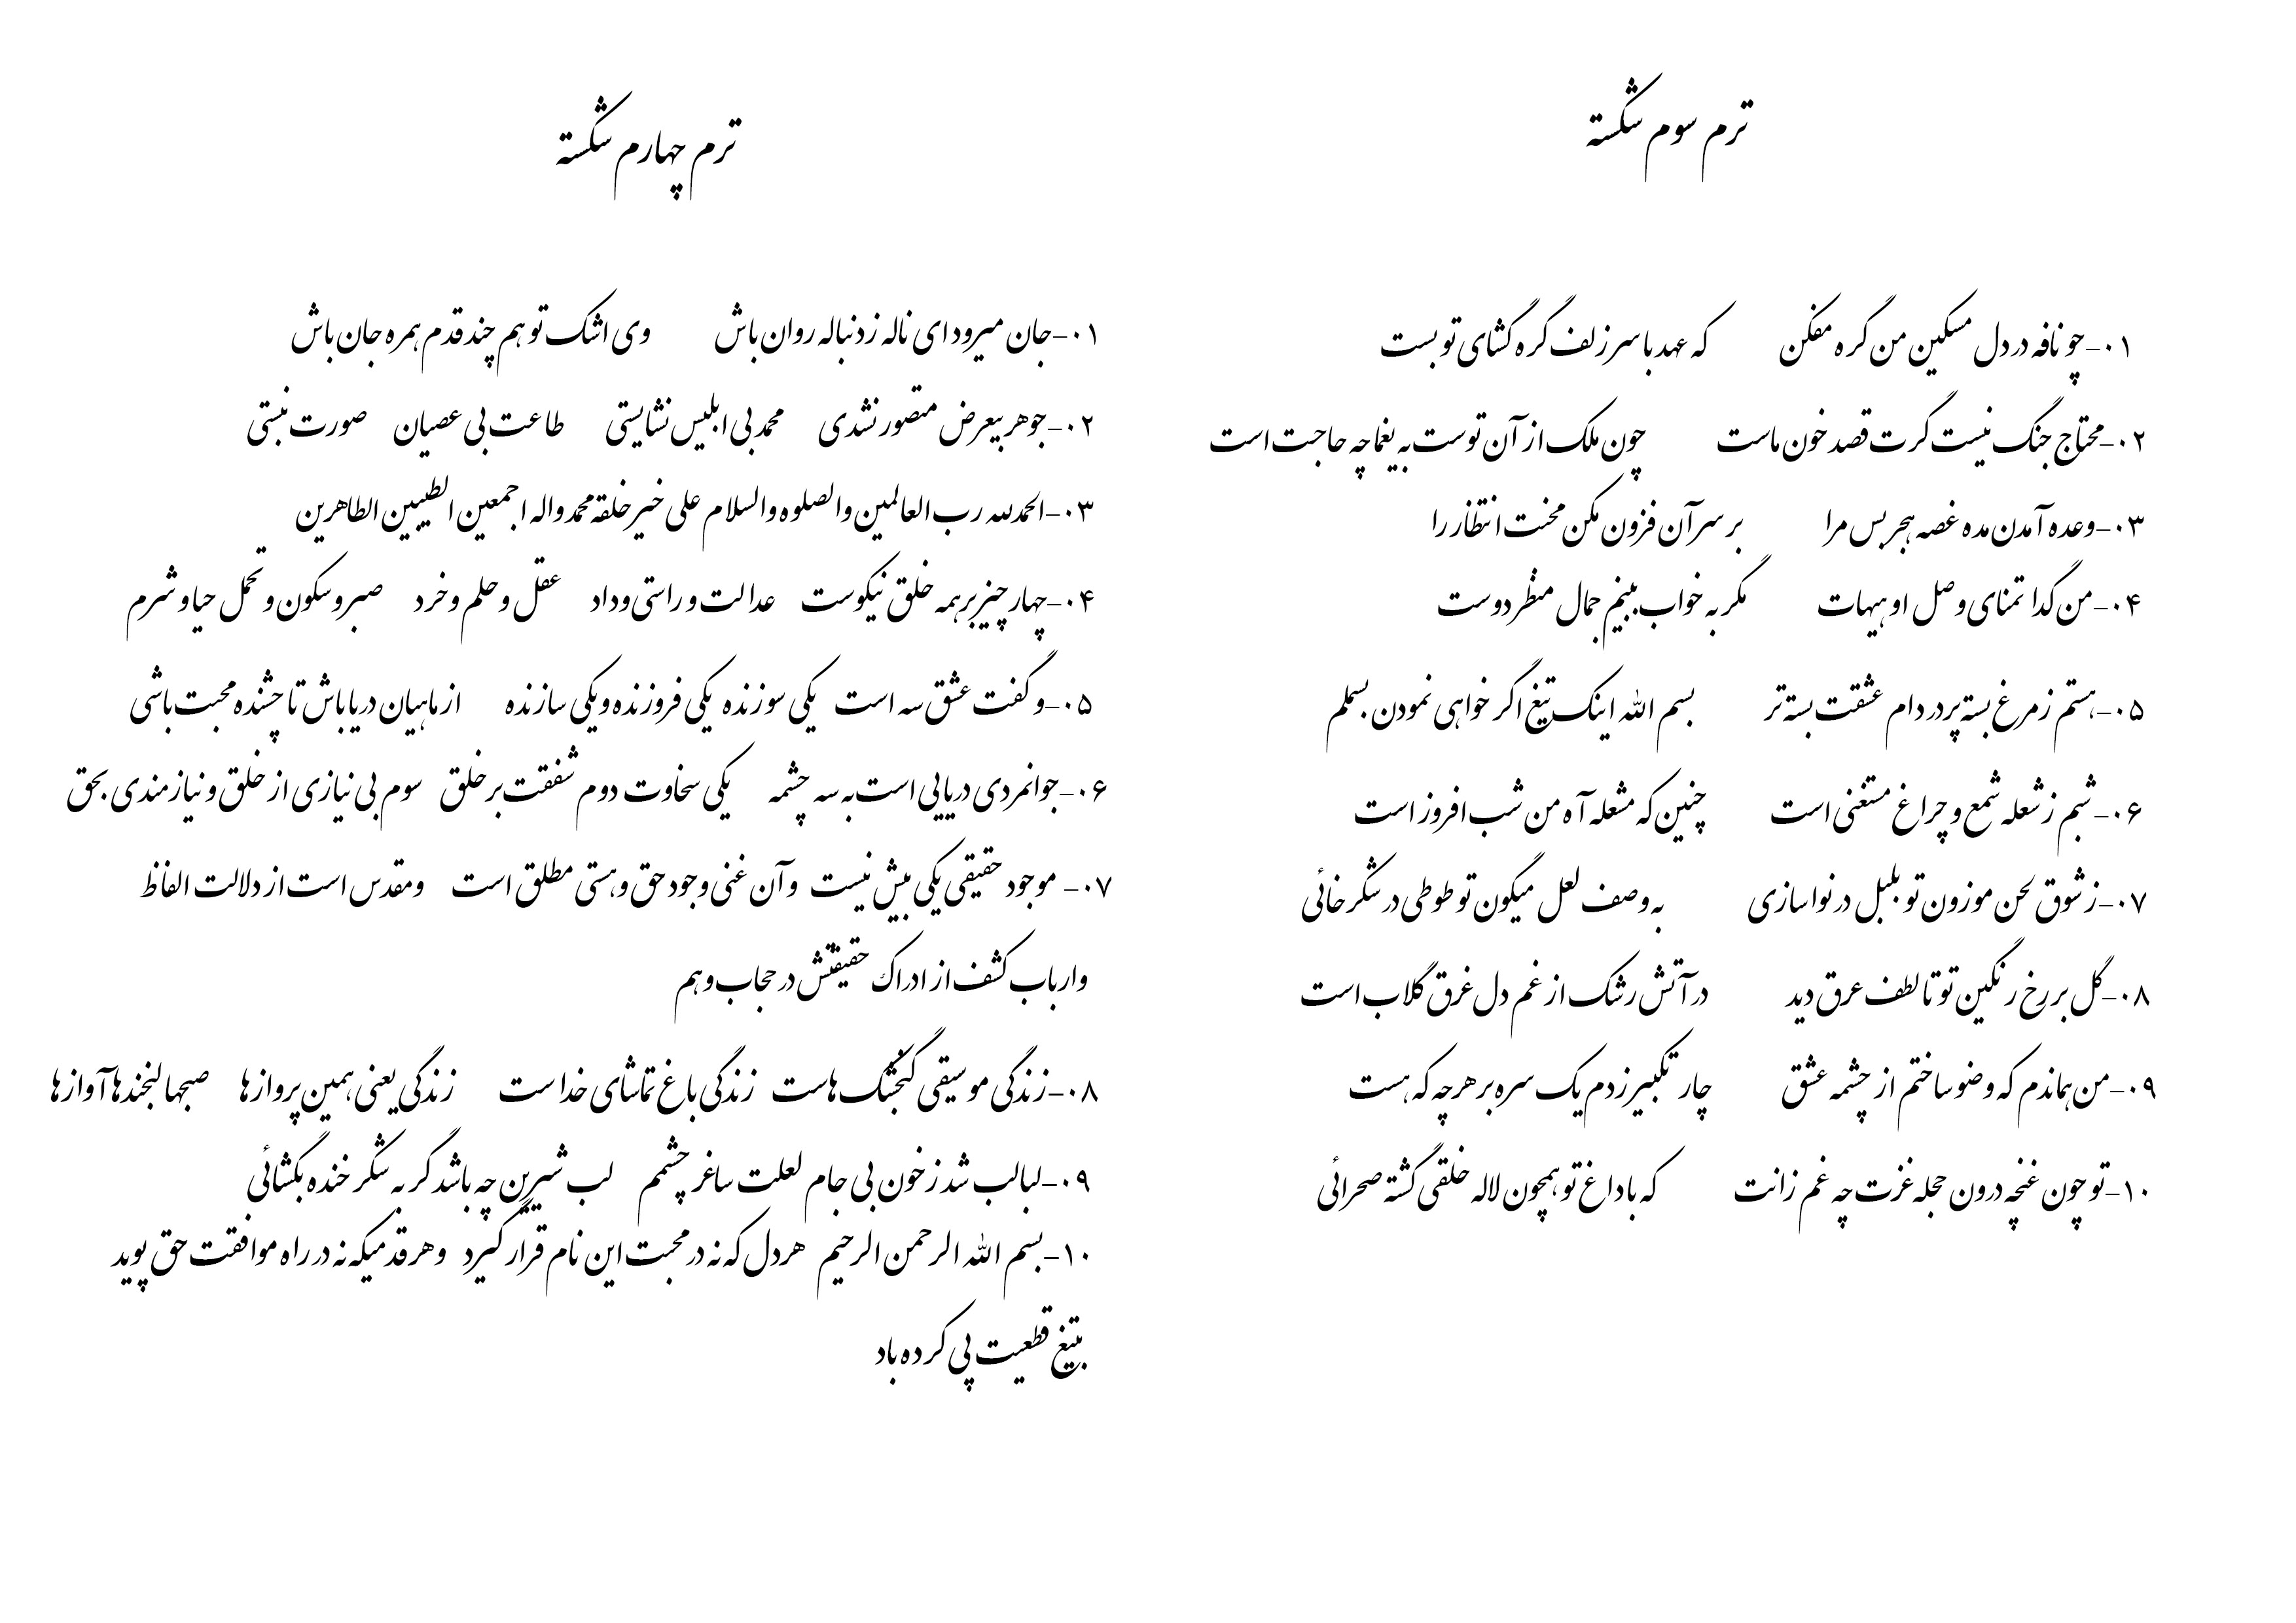 ترم سوم شکسته
۰۱-چو نافه در دل مسکین من گره مفکن که عهد با سر زلف گره گشای تو بست
۰۲-محتاج جنگ نیست گرت قصد خون ماست چون ملک از آن توست به یغما چه حاجت است
۰۳-وعده آمدن مده غصه هجر بس مرا بر سر آن فزون مکن محنت انتظار را
۰۴-من گدا تمنای وصل او هیهات مگر به خواب ببینم جمال منظر دوست
۰۵-هستم ز مرغ بسته پر در دام عشقت بسته تر بسم الله اینک تیغ اگر خواهی نمودن بسملم
۰۶-شبم ز شعله شمع و چراغ مستغنی است چنین که مشعله آه من شب افروز است
۰۷-ز شوق لحن موزون تو بلبل در نواسازی به وصف لعل میگون تو طوطی در شکرخائی
۰۸-گل بر رخ رنگین تو تا لطف عرق دید در آتش رشک از غم دل غرق گلاب است
۰۹-من هماندم که وضو ساختم از چشمه عشق چار تکبیر زدم یک سره بر هر چه که هست
۱۰-تو چون غنچه درون حجله عزت چه غم زانت که با داغ تو همچون لاله خلقی گشته صحرائی
ترم چهارم شکسته
۰۱-جان میرود ای ناله ز دنباله روان باش وی اشک تو هم چند قدم همره جان باش
۰۲-جوهر بیعرض متصور نشدی محمد بی ابلیس نشایستی طاعت بی عصیان صورت نبستی
۰۳-الحمدلله رب العالمین والصلوه والسلام علی خیر خلقه محمد واله اجمعین الطیبین الطاهرین
۰۴-چهار چیز بر همه خلق نیکوست عدالت و راستی و داد عقل و حلم و خرد صبر و سکون و تحمل حیا و شرم
۰۵-و گفت عشق سه است یکی سوزنده یکی فروزنده و یکی سازنده از ماهیان دریا باش تا چشنده محبت باشی
۰۶-جوانمردی دریایی است به سه چشمه یکی سخاوت دوم شفقت بر خلق سوم بی نیازی از خلق و نیازمندی بحق
۰۷- موجود حقیقی یکی بیش نیست و آن غنی وجود حق و هستی مطلق است و مقدس است از دلالت الفاظ
وارباب کشف از ادراک حقیقتش در حجاب وهم
۰۸-زندگی موسیقی گنجشک هاست زندگی باغ تماشای خداست زندگی یعنی همین پروازها صبحها لبخندها آوازها
۰۹-لبالب شد ز خون بی جام لعلت ساغر چشمم لب شیرین چه باشد گر به شکر خنده بگشائی
۱۰-بسم الله الرحمن الرحیم هر دل که نه در محبت این نام قرار گیرد و هر قدمیکه نه در راه موافقت حق پوید
بتیغ قطعیت پی کرده باد